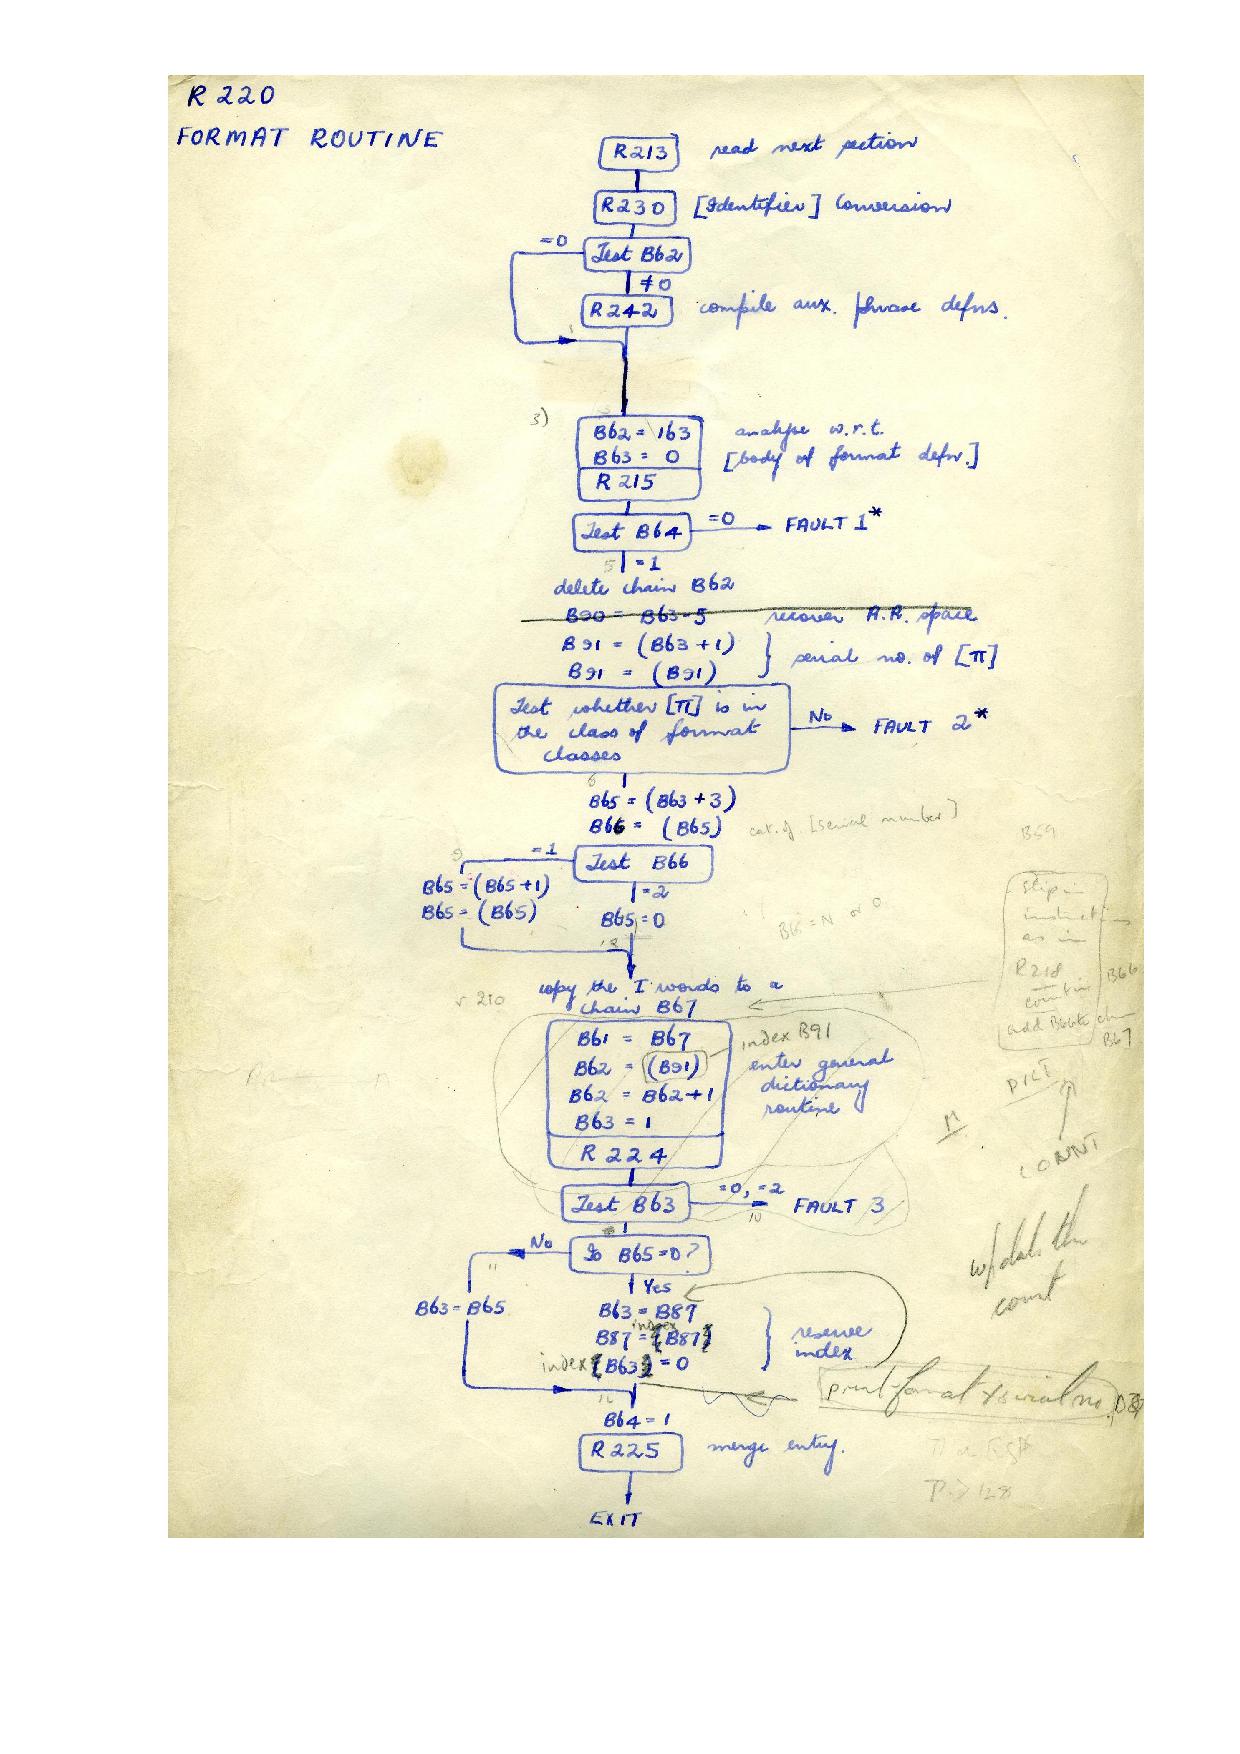 R 220
FORMAT ROUTINE
R213 read next section
R230 [Identifier] Conversion
=0 Test B62
≠0
R242 compile aux. phrase defns.
3)
B62 = 163 analyse w.r.t.
B63 = 0 [body of format defn.]
R 215
Test B64 =0 FAULT 1*
5 = 1
delete chain B62
B90 = B63-5 recover A.R. space
B91 = (B63+1)
B91 = (B91) serial no. of [π]
Test whether [π] is in
the class of format
classes
No FAULT 2*
6
B65 = (B63+3)
B66 = (B65) cat. of [serial number]
B59
9 =1 Test B66
B65 = (B65+1) =2
B65 = (B65) B65 = 0
B65 = N or 0
slip in
instructions
as in
R218
B66
B67
copy the I words to a
chain B67
r 210
B61 = B67 index B91
B62 = (B91) enter general
B62 = B62+1 dictionary
B63 = 1 routine
R 224
Test B63 =0, =2 FAULT 3
10
No Is B65=0?
11
Yes
update the
count
B63 = B65 B63 = B87
index
B87 = (B87) reserve
index (B63) = 0 index
print format & serial no.
12
B64 = 1
R225 merge entry.
EXIT